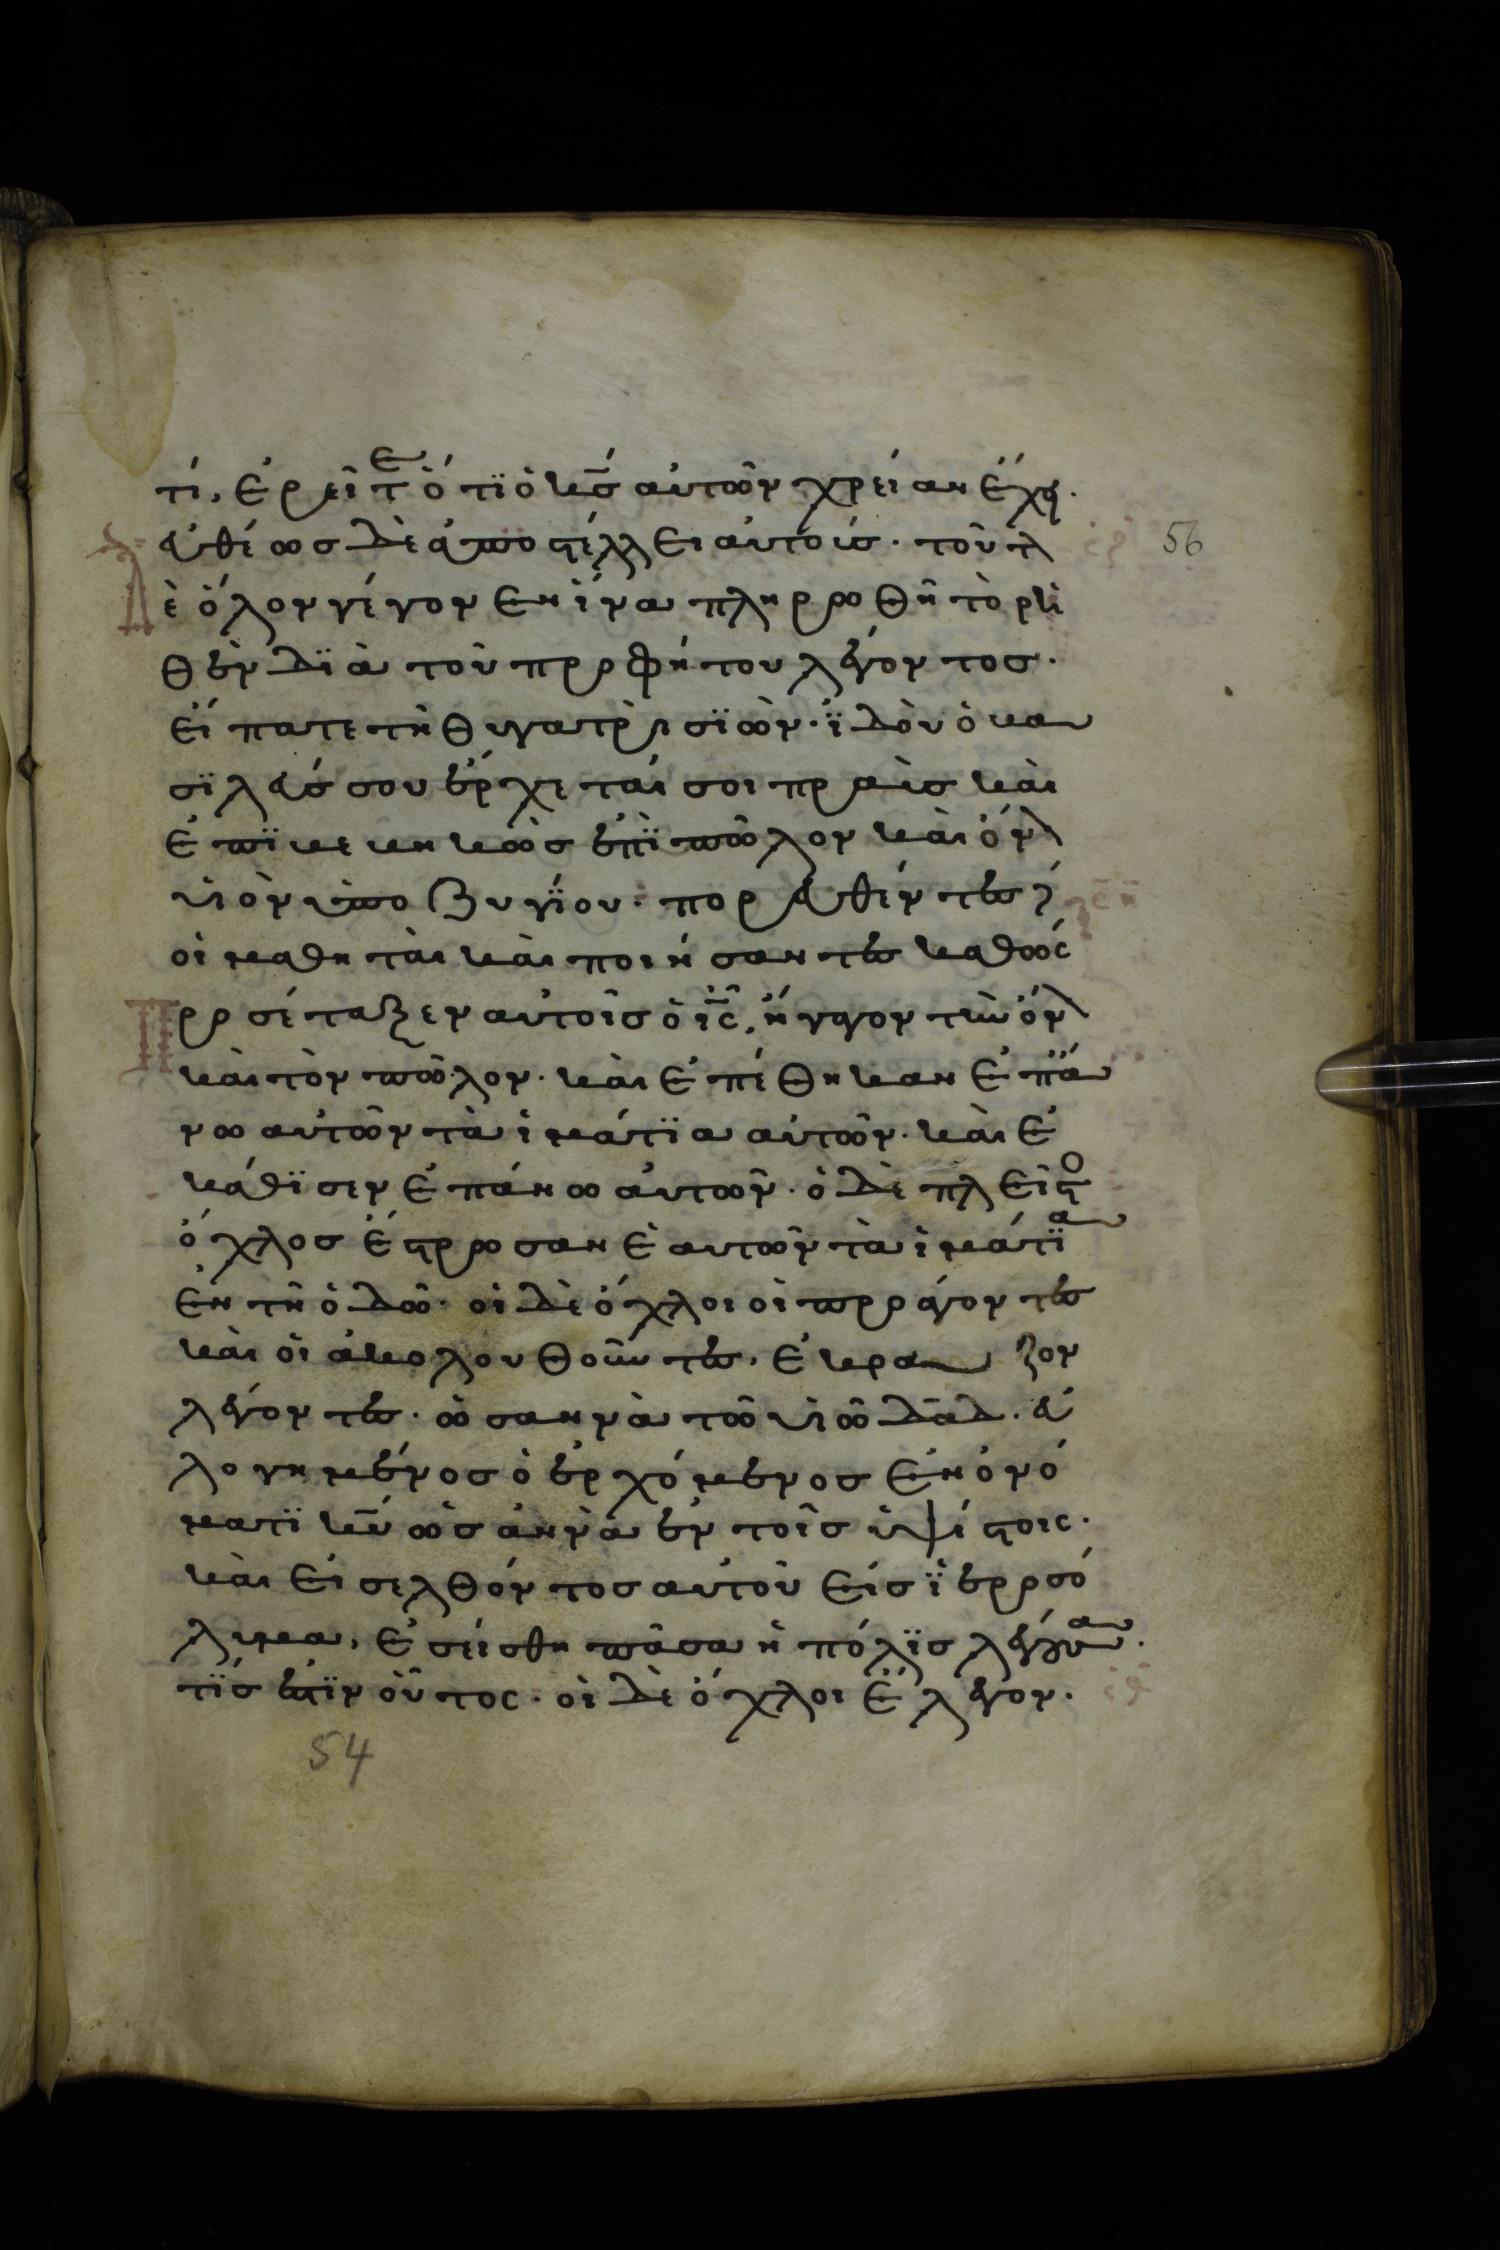 τί, ἐρεῖτε ὅτϊ ὁ κ̅ς̅ αὐτῶν χρείαν ἔχει.
εὐθέως δὲ ἀποστέλλει αὐτούς. τοῦτ
δὲ ὅλον γέγονεν ἵνα πληρωθῆ τὸ ρη
θὲν δϊὰ τοῦ προφήτου λέγοντος.
εἴπατε τῆ θυγατρὶ σϊών. ἰ̈δοὺ ὁ βα
σϊλεύς σου ἔρχεταί σοι πραὺς καὶ
ἐπϊβεβηκὼς ἐπῒ πῶλον καὶ ὄν
υἱὸν ὑποζυγΐου. πορευθέντες δ
οἱ μαθηταὶ καὶ ποιήσαντες καθὼς
Προσέταξεν αὐτοῖς ὁ ι̅ς̅, ἤγαγον τὴν ὄν
καὶ τὸν πῶλον. καὶ ἐπέθηκαν ἐπά
νω αὐτῶν τὰ ἱμάτϊα αὐτῶν. καὶ ἐ
κάθϊσεν ἐπάνω αὐτῶν. ὁ δὲ πλεῖστο
ὄχλος ἔστρωσαν ἑαυτῶν τὰ ἱμάτϊα
ἐν τῆ ὁδῶ. οἱ δὲ ὄχλοι οἱ προάγοντες
καὶ οἱ ἀκολουθοῦντες, ἔκραζον
λέγοντες. ὡσαννὰ τῶ υἱῶ δ̅α̅δ̅. εὐ
λογημένος ὁ ἐρχόμενος ἐν ὀνό
ματϊ κ̅υ̅ ὡσαννὰ ἐν τοῖς ὑψίστοις.
καὶ εἰσελθόντος αὐτοῦ εἰς ἰ̈εροσό
λυμα, ἐσείσθη πᾶσα ἡ πόλϊς λέγουσα.
τΐς ἐστϊν οὗτος. οἱ δὲ ὄχλοι ἔλεγον.
56
54